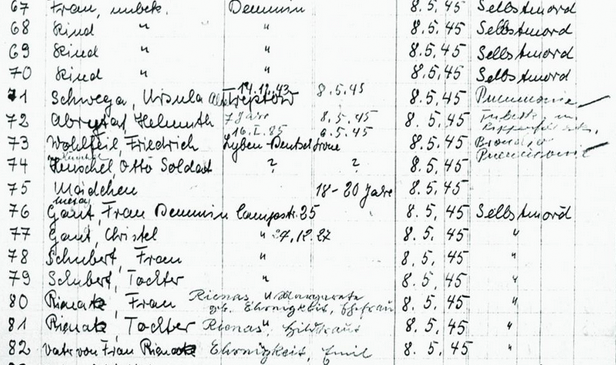 67 Frau, unbek. Demmin 8.5.45 Selbstmord
68 Kind " " 8.5.45 Selbstmord
69 Kind " " 8.5.45 Selbstmord
70 Kind " " 8.5.45 Selbstmord
71 Schwega, Ursula Treptow 14.11.43 8.5.45 8.5.45 Pneumonie
72 Helmuth 7 Jahre 8.5.45 8.5.45
73 Wohlfeil Friedrich 16.I.85 6.5.45 8.5.45
74 Henschel, Otto Soldat ? ? 8.5.45 Pneumonie
75 Mädchen 18-20 Jare 8.5.45
76 Gaut, Frau Demmin 25 8.5.45 Selbstmord
77 Gaut, Christel " 27.12.27 8.5.45 "
78 Schubert, Frau " 8.5.45 "
79 Schubert, Tochter " 8.5.45 "
80 Frau Rienas, Margarete 8.5.45 "
geb. Ehronigkeit, Ehefrau
81 Tochter Rienas, 8.5.45 "
82 Vater von Frau Ehronigkeit, Emil 8.5.45 "